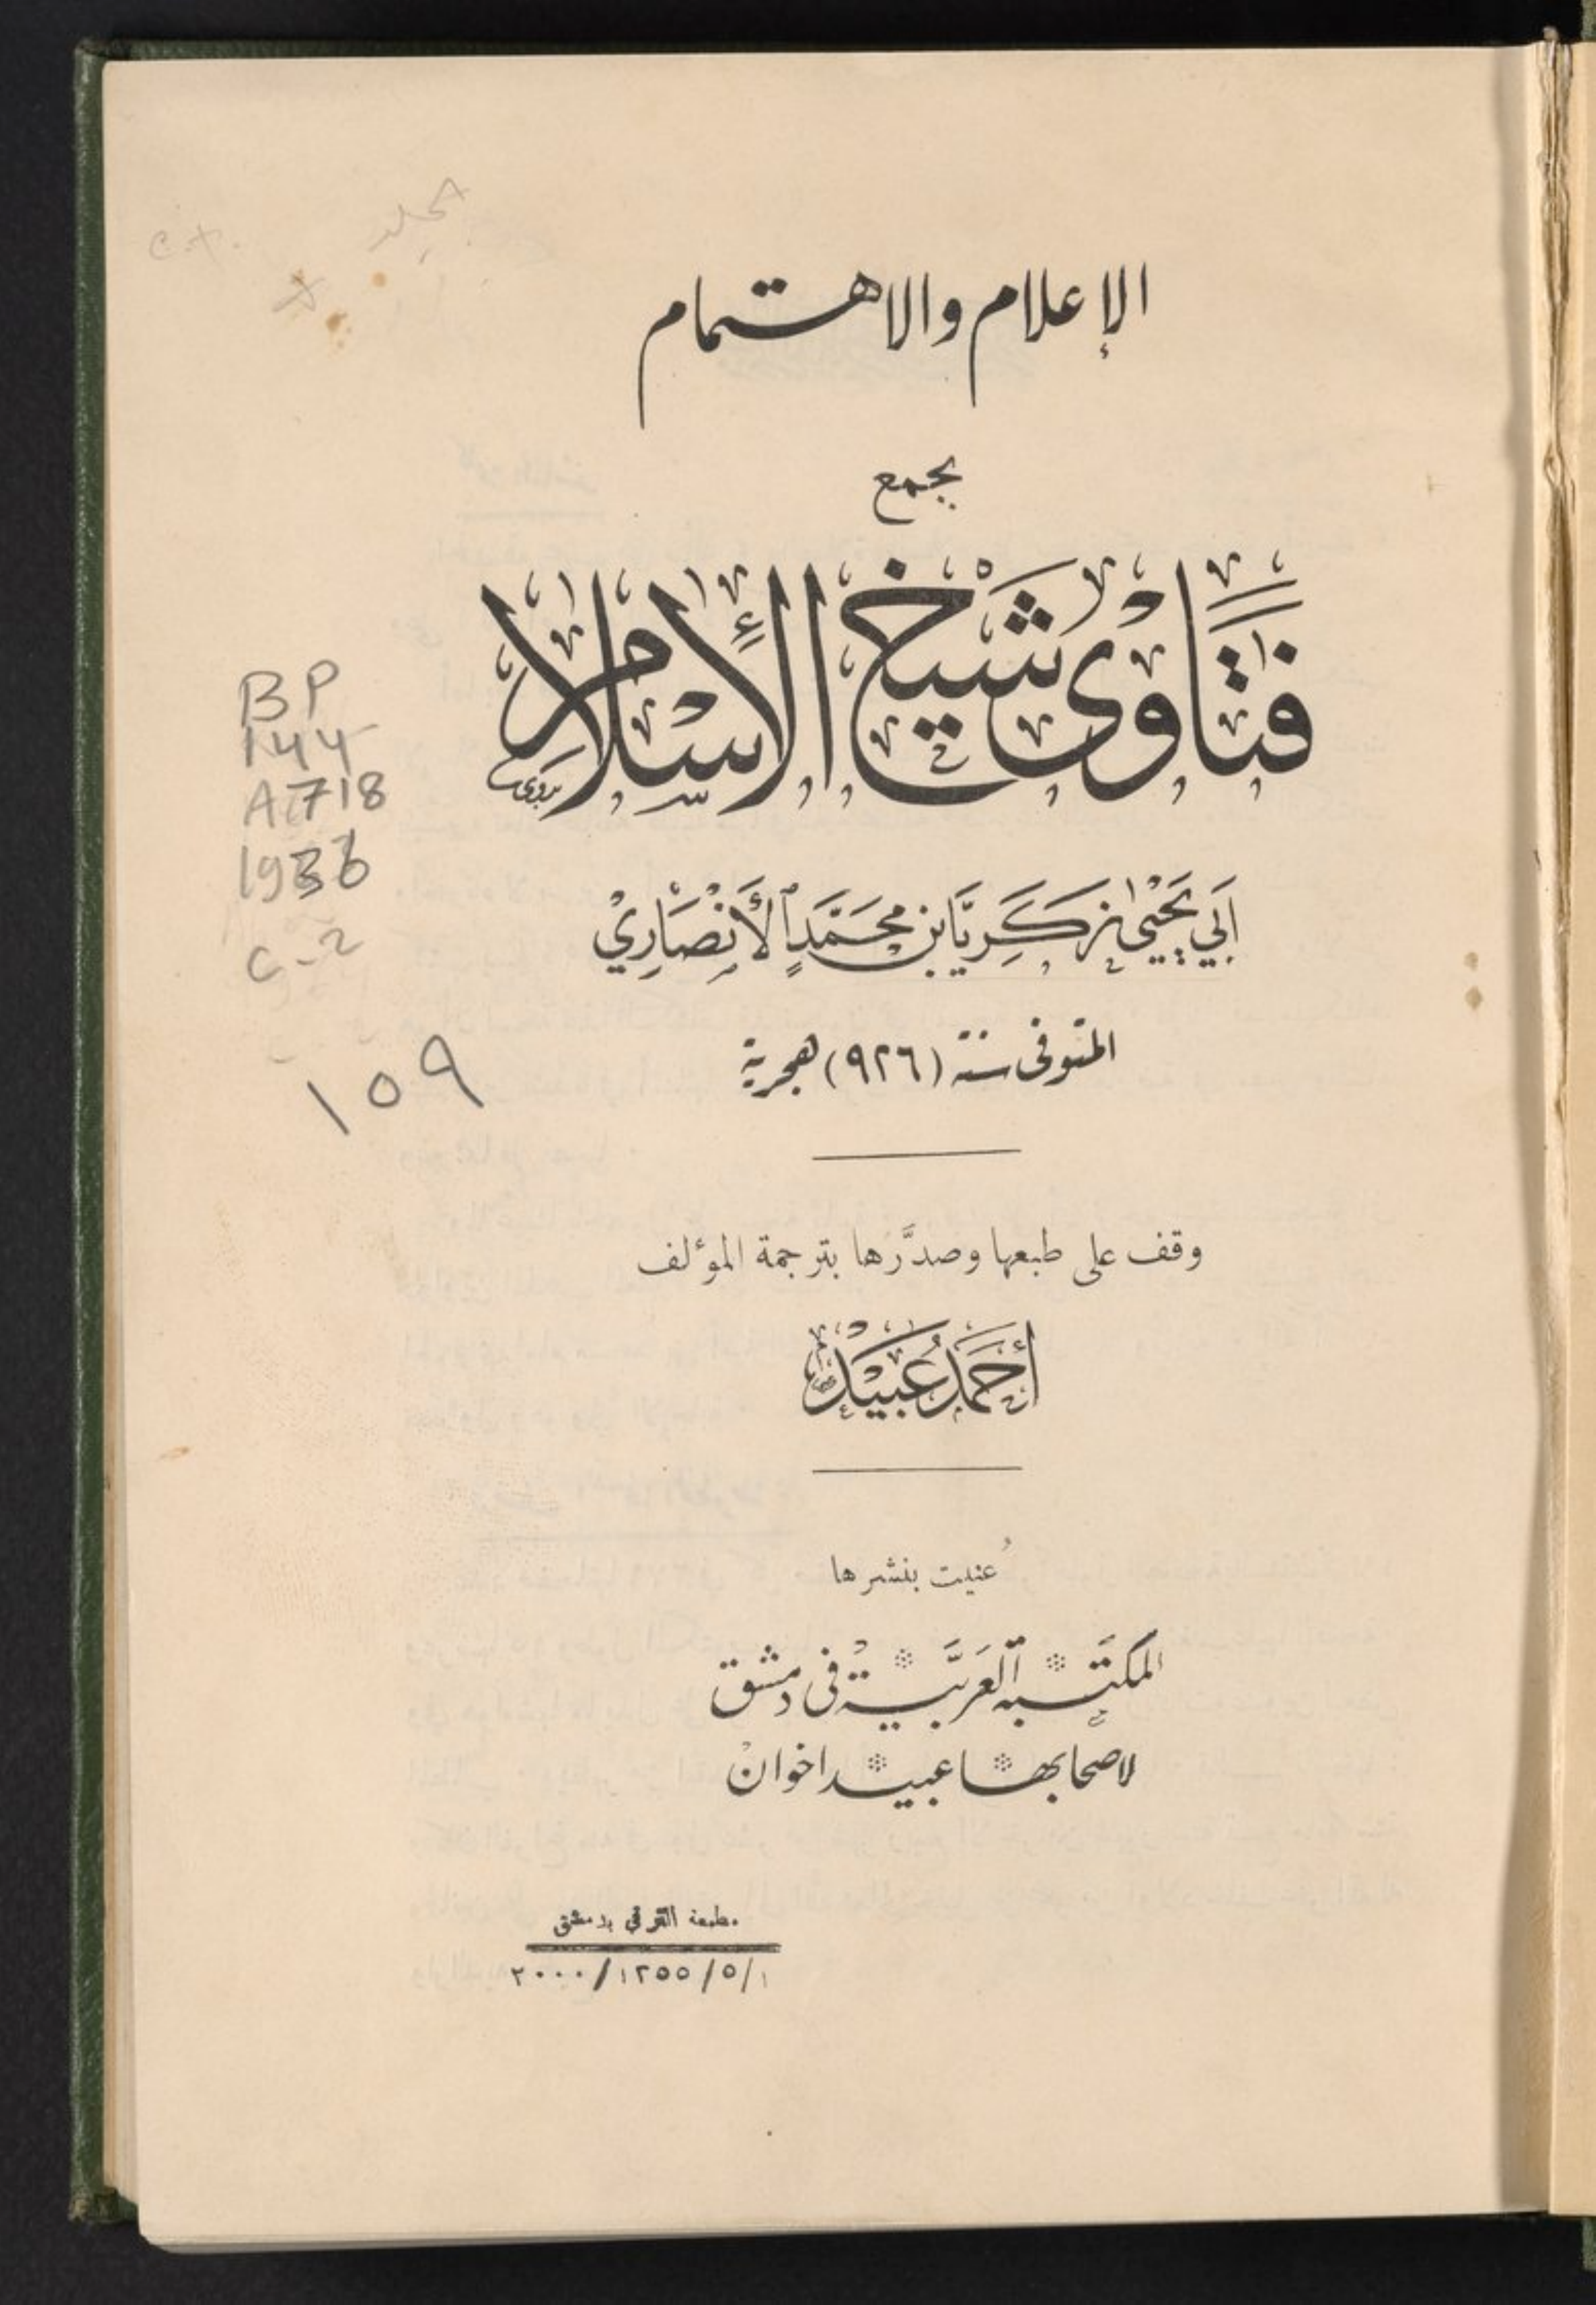 الإعلام والاهتمام
بجمع
فَتَاوى شَيْخ الإِسْلام
أَبي يَحْيَى زَكَرِيَّا بن محَمَّدٍ الأَنْصَارِيْ
المتوفى سنة (٩٢٦) هجرية
وقف على طبعها وصدَّرها بترجمة المؤلف
أَحْمَد عُبَيْد
عُنيت بنشرها
المكتَبة العَربيَّة في دمشق
لاصحابها عبيد اخوان
مطبعة الترقي بدمشق
٢٠٠٠/١٣٥٥/٥/١
BP
144
A718
1936
c-2
١٥٩